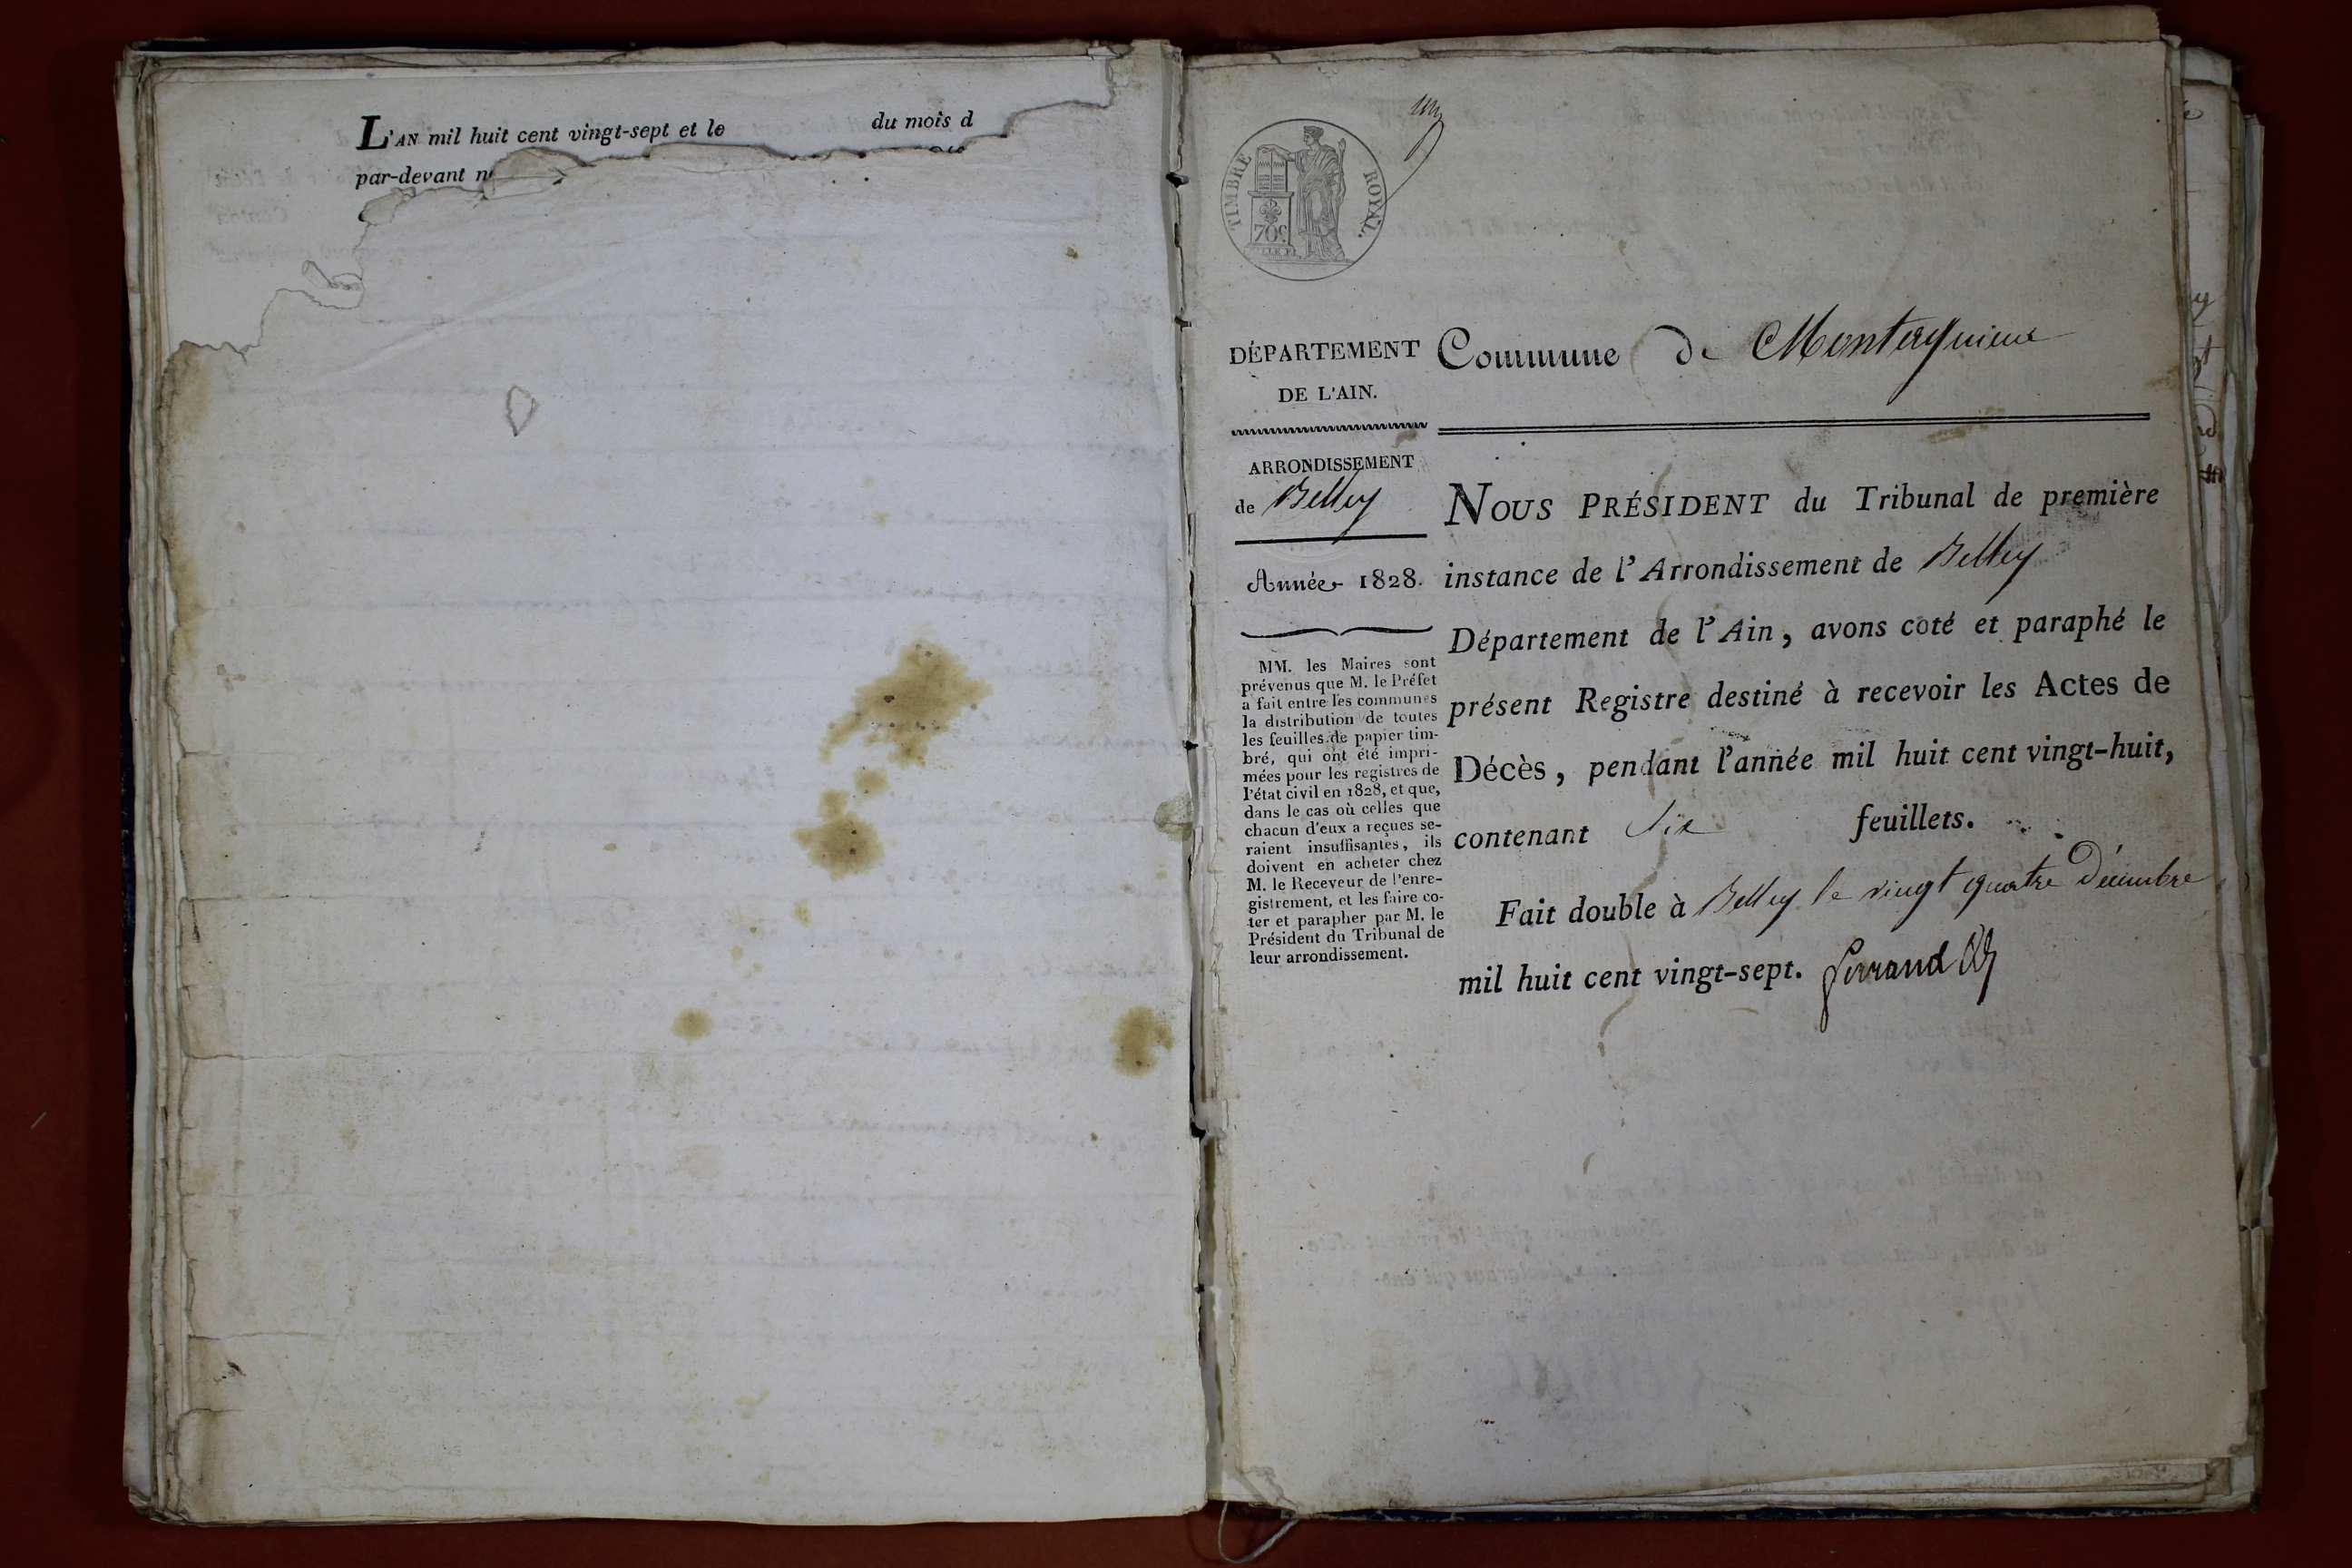 L'AN mil huit cent vingt-sept et le du mois d
par-devant n
un
TIMBRE ROYAL.
70c
DÉPARTEMENT
DE L'AIN.
Commune de Montagnieu
ARRONDISSEMENT
de Belley
Année 1828.
MM. les Maires sont
prévenus que M. le Préfet
a fait entre les communes
la distribution de toutes
les feuilles de papier tim-
bré, qui ont été impri-
mées pour les registres de
l'état civil en 1828, et que,
dans le cas où celles que
chacun d'eux a reçues se-
raient insuffisantes, ils
doivent en acheter chez
M. le Receveur de l'enre-
gistrement, et les faire co-
ter et parapher par M. le
Président du Tribunal de
leur arrondissement.
NOUS PRÉSIDENT du Tribunal de première
instance de l'Arrondissement de Belley
Département de l'Ain, avons coté et paraphé le
présent Registre destiné à recevoir les Actes de
Décès, pendant l'année mil huit cent vingt-huit,
contenant Six feuillets.
Fait double à Belley le vingt quatre Décembre
mil huit cent vingt-sept.